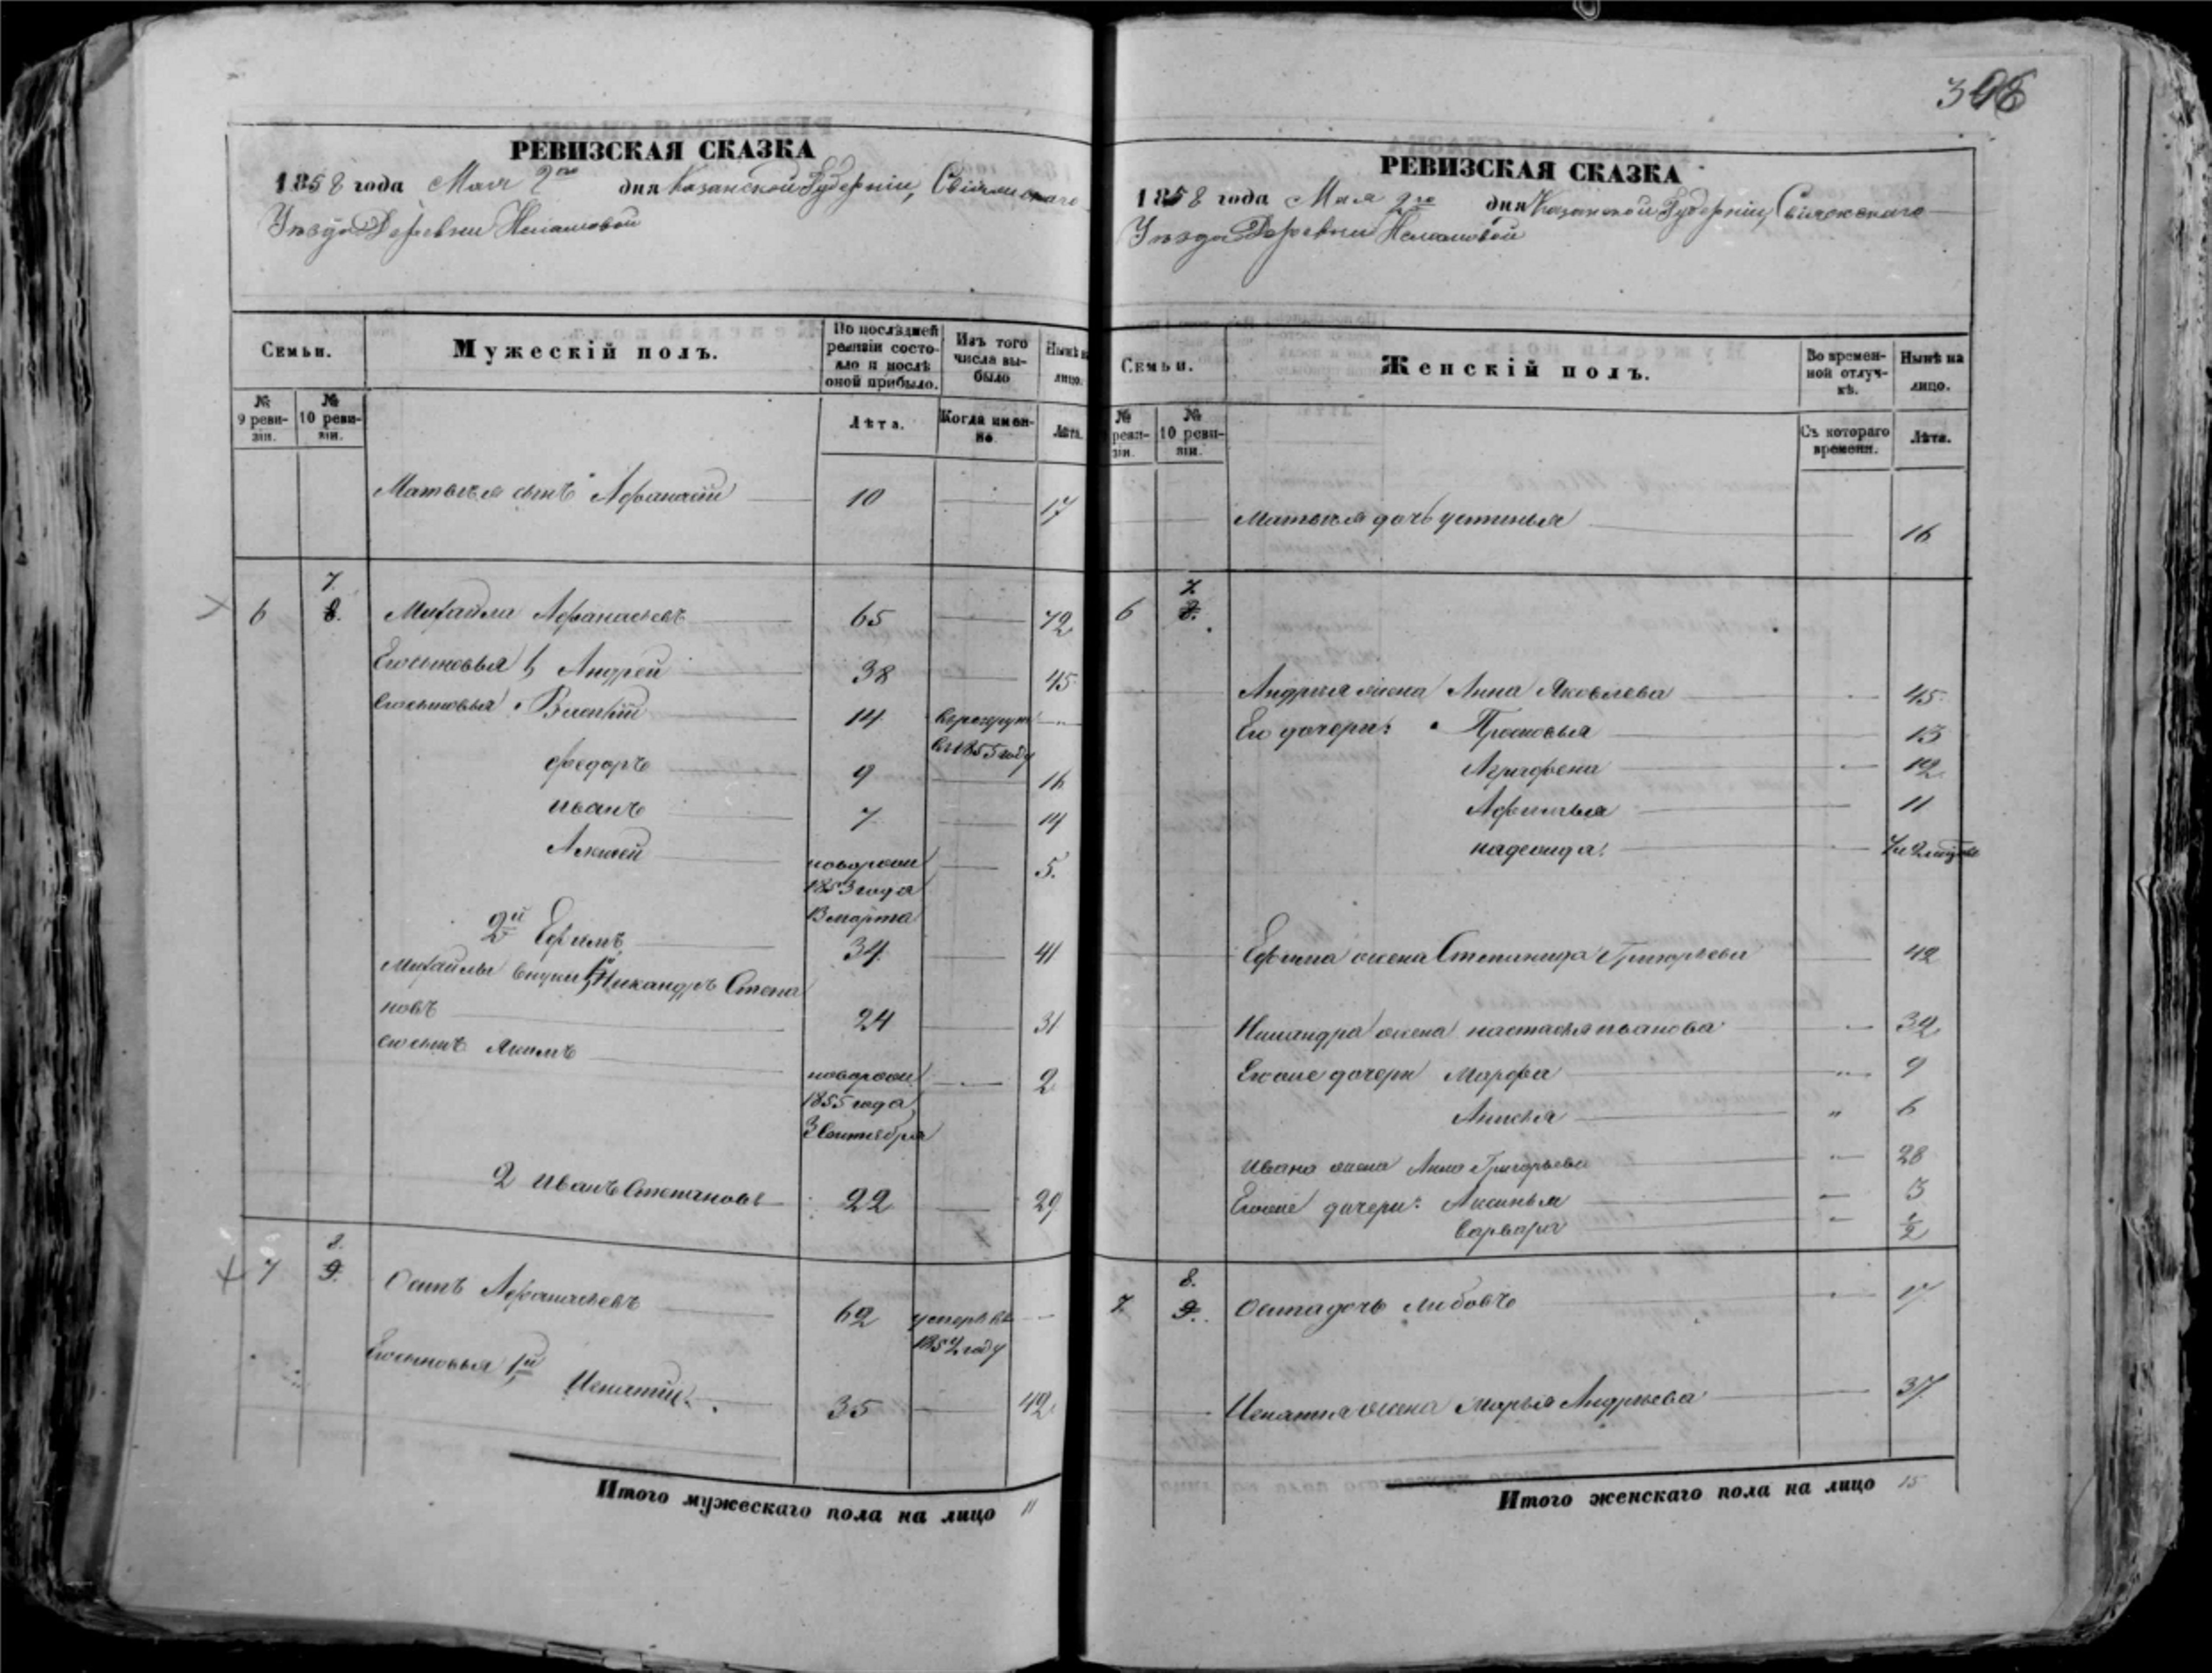 398
РЕВИЗСКАЯ СКАЗКА
1858 года Мая 2го дня Казанской Губерніи, Свіяжскаго
Уѣзда Деревни
Семьи.
Мужескій полъ.
По послѣдней ревизіи состояло и послѣ оной прибыло.
Изъ того числа выбыло
Нынѣ на лицо.
№ 9 ревизіи.
№ 10 ревизіи.
Лѣта.
Когда именно.
Лѣта.
Матвѣя сынъ Афанасій 10 17
6 7. 8. Михайла Афанасьевъ 65 72
Егосыновья 1, Андрей 38 45
Егосыновья Василій 14 въ рекруты въ 1855 году
федоръ 9 16
иванъ 7 14
Алексей новорожд 1853 года 13 марта 5.
2й Ефимъ 34 41
Михайлы внуки 1й Никандръ Степа
новъ 24 31
его сынъ Якимъ новорожд 1855 года 3 Сентября 2
2 иванъ Степановъ 22 29
7 8. 9. Осипъ Афанасьевъ 62 умеръ въ году
Егосыновья 1й Игнатий. 35 42
Итого мужескаго пола на лицо 11
РЕВИЗСКАЯ СКАЗКА
1858 года Мая 2го дня Казанской Губерніи, Свіяжскаго
Уѣзда Деревни
Семьи.
Женскій полъ.
Во временной отлучкѣ.
Нынѣ на лицо.
№ реви-зіи.
№ 10 ревизіи.
Съ котораго времени.
Лѣта.
Матвѣя дочь устинья 16
6 7. 8.
Андрея жена Анна Яковлева 45
Его дочери: Просковья 15
Агрофена 12
Афимья 11
надежида.
Ефима жена Степанида Григорьева 42
Никандра жена настасья иванова 32
Егоже дочери Марфа 9
Анисья 6
Ивана жена Анна Григорьева 28
Егоже дочери: Аксинья 3
варвара ½
7. 8. 9. Осипа дочь любовь 17
Игнатия жена Марья Андреева 37
Итого женскаго пола на лицо 15